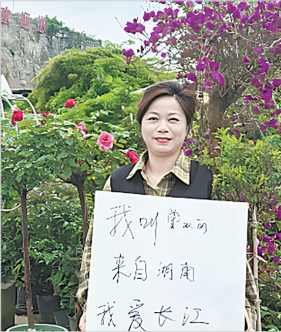 我叫
来自湖南
我爱长江